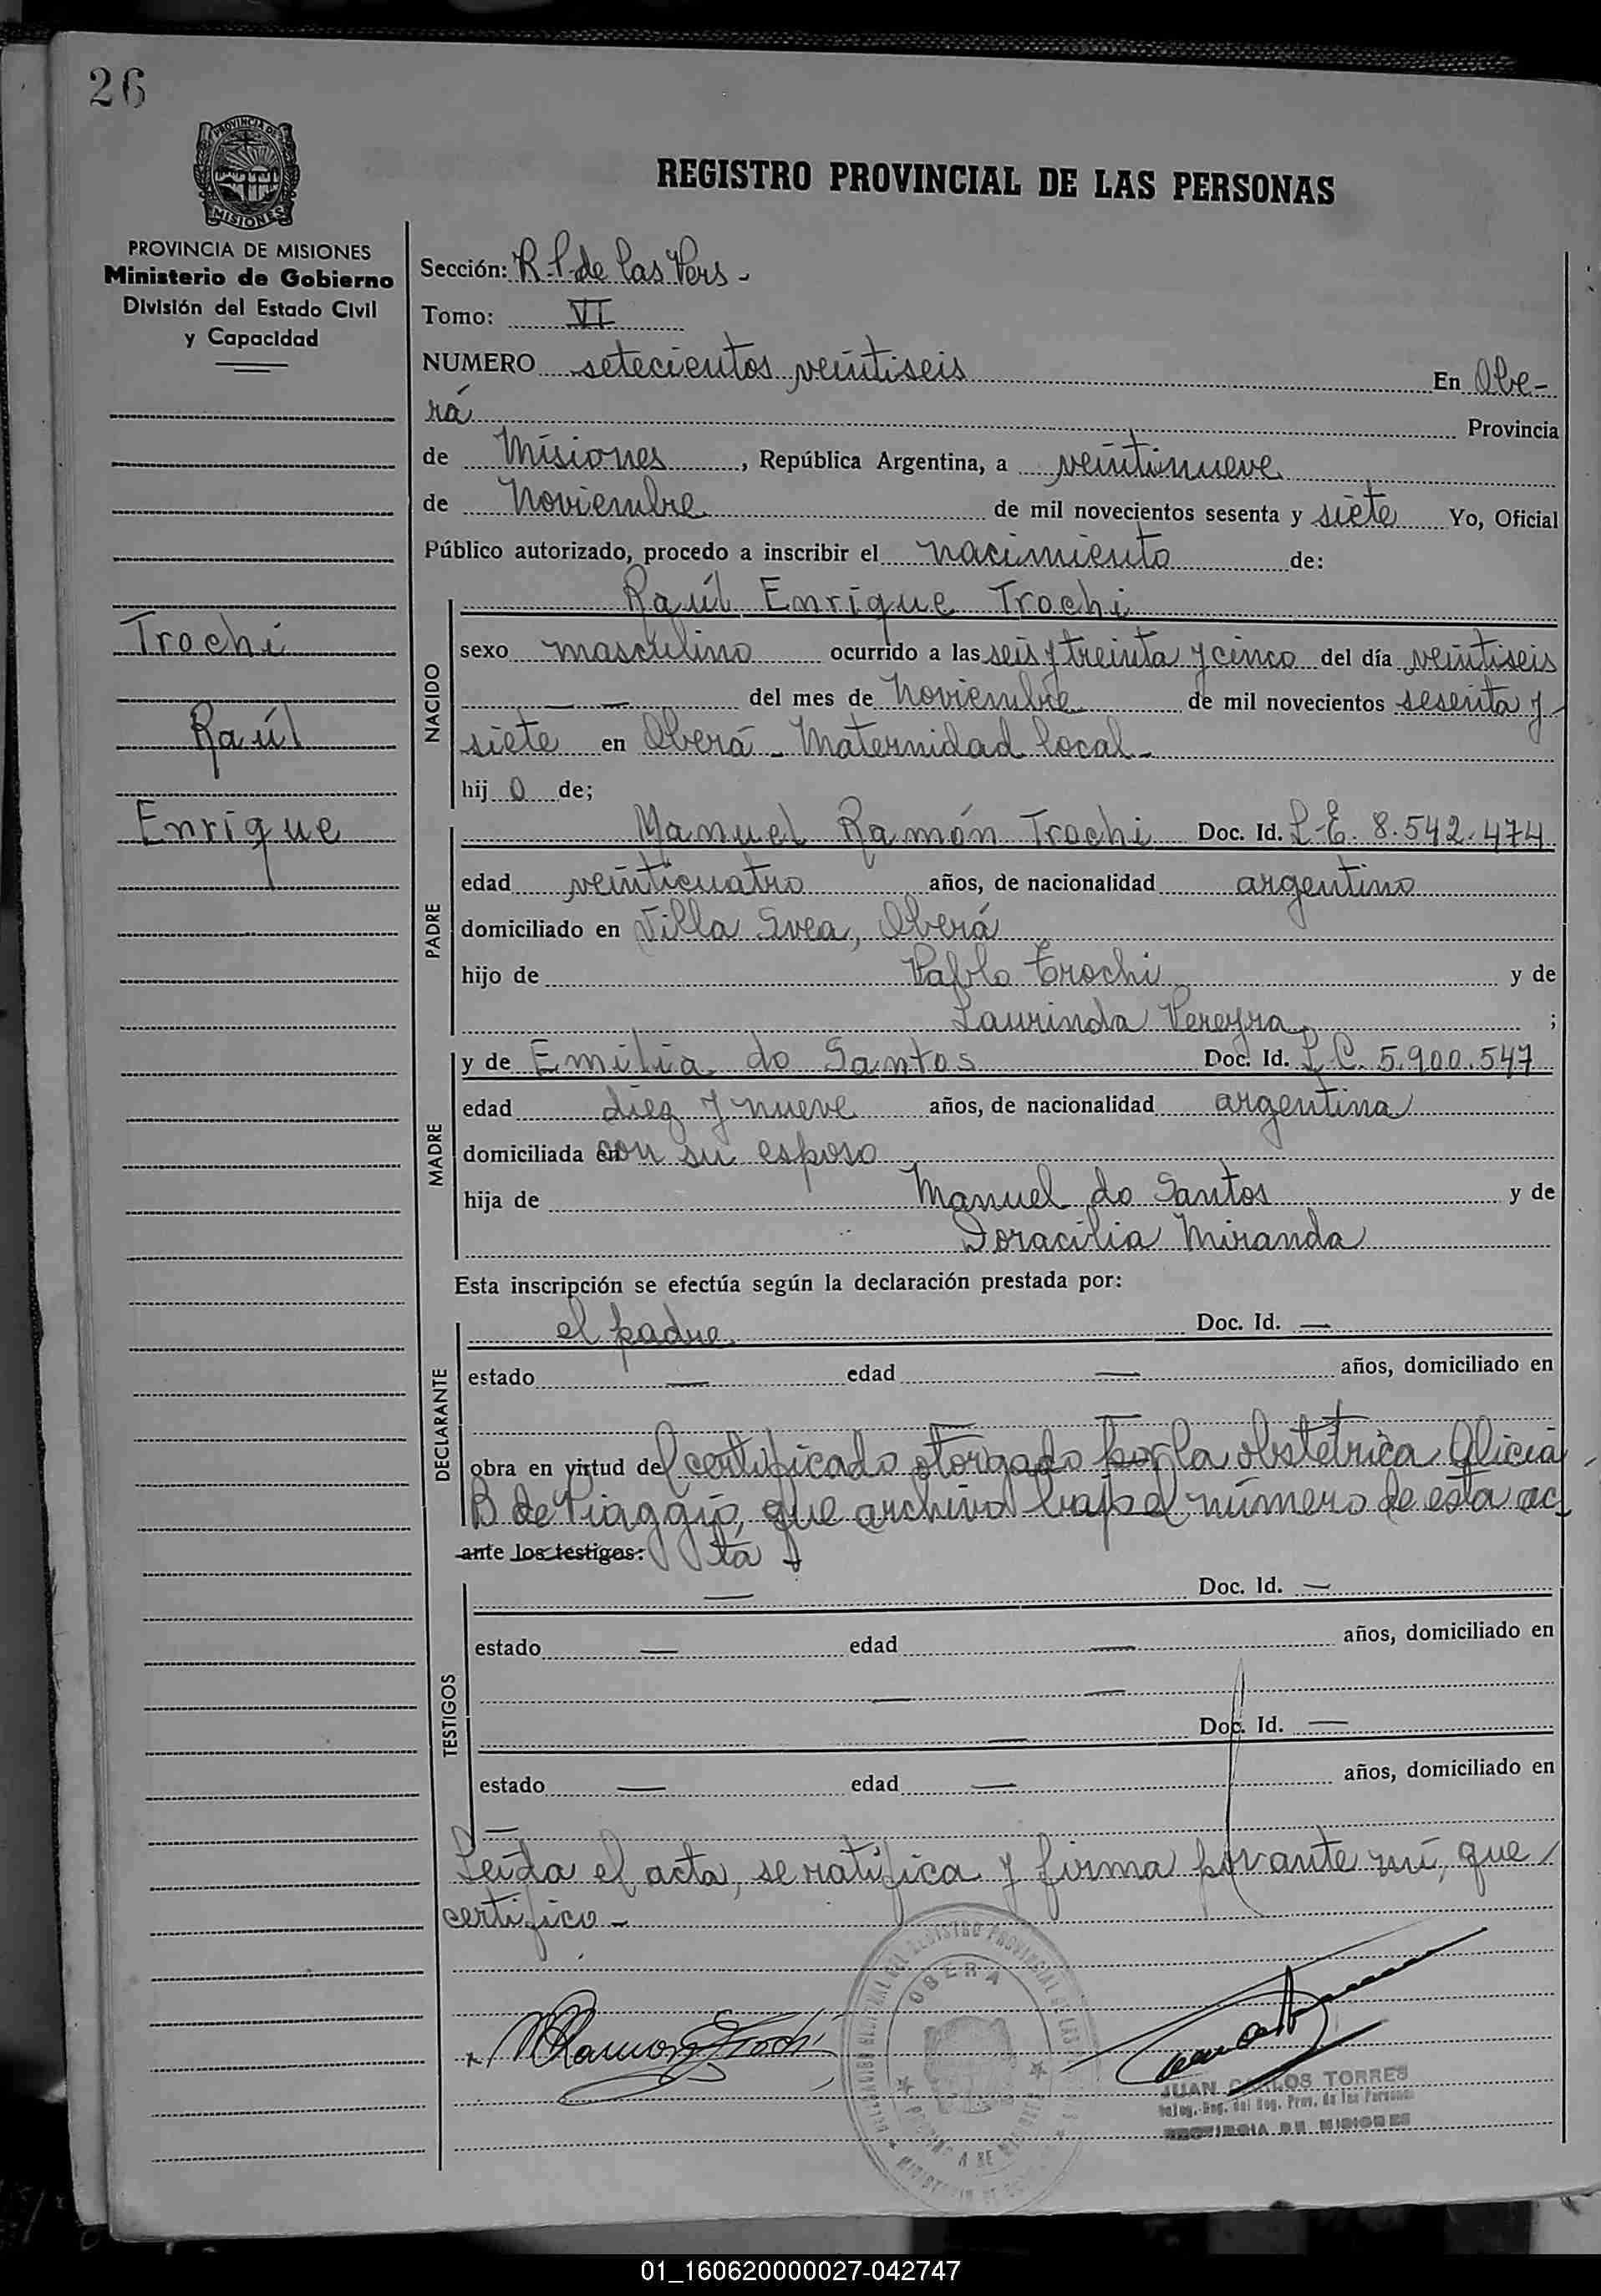 26
PROVINCIA DE
MISIONES
REGISTRO PROVINCIAL DE LAS PERSONAS
PROVINCIA DE MISIONES
Ministerio de Gobierno
División del Estado Civil
y Capacidad
Trochi
Raúl
Enrique
Sección: R.P. de las Pers -
Tomo: VI
NUMERO setecientos veintiseis En Obe-
rá Provincia
de Misiones, República Argentina, a veintinueve
de Noviembre de mil novecientos sesenta y siete Yo, Oficial
Público autorizado, procedo a inscribir el nacimiento de:
NACIDO
Raúl Enrique Trochi
sexo masculino ocurrido a las seis y treinta y cinco del día veintiseis
— — del mes de Noviembre de mil novecientos sesenta y
siete en Oberá - Maternidad local -
hij o de;
PADRE
Manuel Ramón Trochi Doc. Id. L.E. 8.542.474
edad veinticuatro años, de nacionalidad argentino
domiciliado en Villa Svea, Oberá
hijo de Pablo Trochi y de
Laurinda Pereyra ;
MADRE
y de Emilia do Santos Doc. Id. L.C. 5.900.547
edad diez y nueve años, de nacionalidad argentina
domiciliada en con su esposo
hija de Manuel do Santos y de
Doracilia Miranda
Esta inscripción se efectúa según la declaración prestada por:
DECLARANTE
el padre Doc. Id. —
estado — edad — años, domiciliado en
— —
obra en virtud del certificado otorgado por la obstétrica Alicia
B de Piaggio, que archivo bajo el número de esta ac-
ante los testigos: ta -
TESTIGOS
— Doc. Id. —
estado — edad — años, domiciliado en
— —
— Doc. Id. —
estado — edad — años, domiciliado en
—
Leída el acta, se ratifica y firma por ante mí, que
certifico -
x M Ramon Trochi
REGISTRO PROVINCIAL DE LAS
OBERA
JUAN CARLOS TORRES
Deleg. Reg. del Reg. Prov. de las Personas
PROVINCIA DE MISIONES
01_160620000027-042747